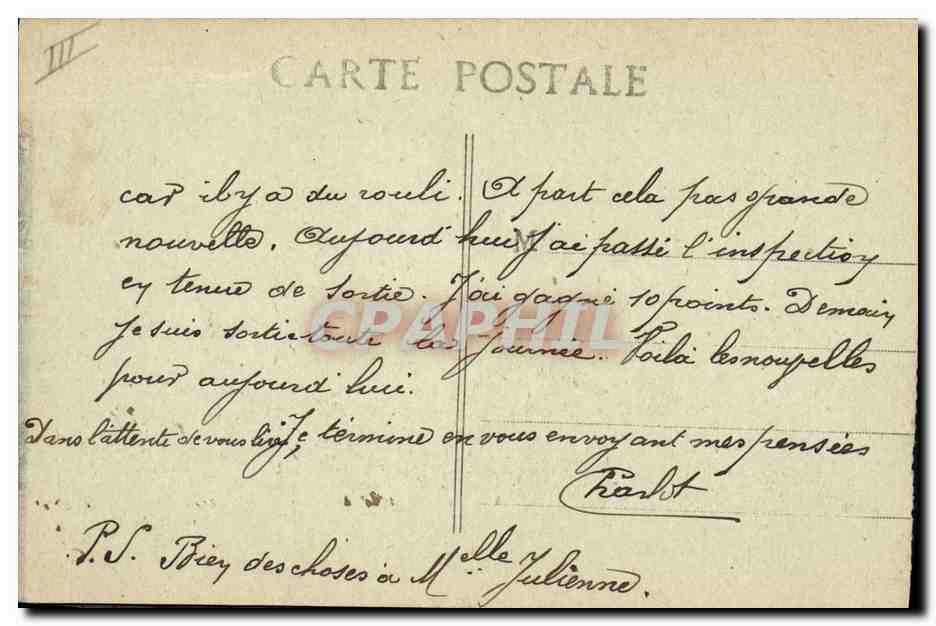 III
CARTE POSTALE
car il y a du rouli. A part cela pas grande
nouvelle. Aujourd'hui M j'ai passé l'inspection
en tenue de sortie. J'ai gagné 10 points. Demain
je suis sortie toute la journée. Voilà les nouvelles
pour aujourd'hui.
Dans l'attente de vous lire, Je termine en vous envoyant mes pensées
Charlot
P.S. Bien des choses à Melle Julienne.
CPAPHIL